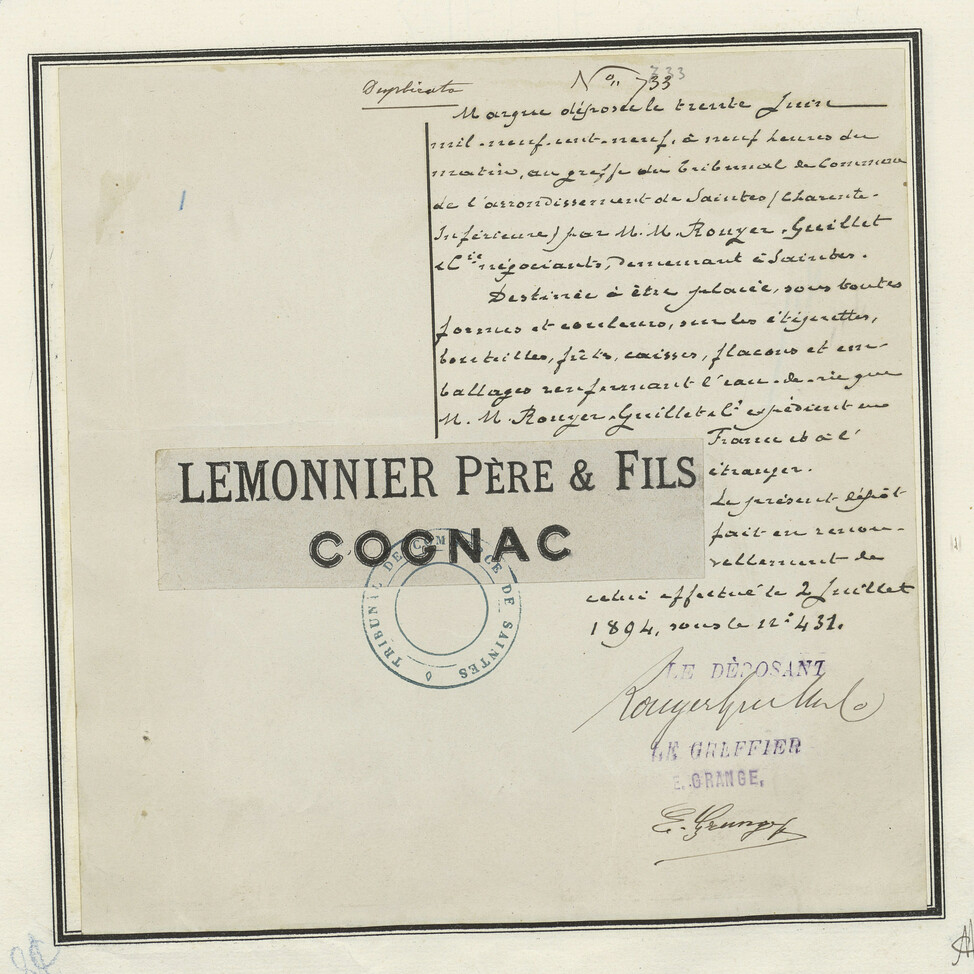 Duplicata
N° 733
733
Marque déposée le trente Juin
mil-neuf-cent-neuf, à neuf heures du
matin, au greffe du Tribunal de Commerce
de l'arrondissement de Saintes (Charente-
Inférieure) par M.M. Rouyer, Guillet
& Cie négociants, demeurant à Saintes.
Destinée à être placée, sous toutes
formes et couleurs, sur les étiquettes,
bouteilles, fûts, caisses, flacons et em-
ballages renfermant l'eau-de-vie que
M.M. Rouyer, Guillet & Cie expédient en
France et à l'
étranger.
Le présent dépôt
fait en renou-
vellement de
celui effectué le 2 Juillet
1894, sous le n° 431.
LEMONNIER PÈRE & FILS
COGNAC
TRIBUNAL DE COMMERCE DE SAINTES
LE DÉPOSANT
Rouyer Guillet & Co
LE GREFFIER
E. GRANGE,
E. Grange